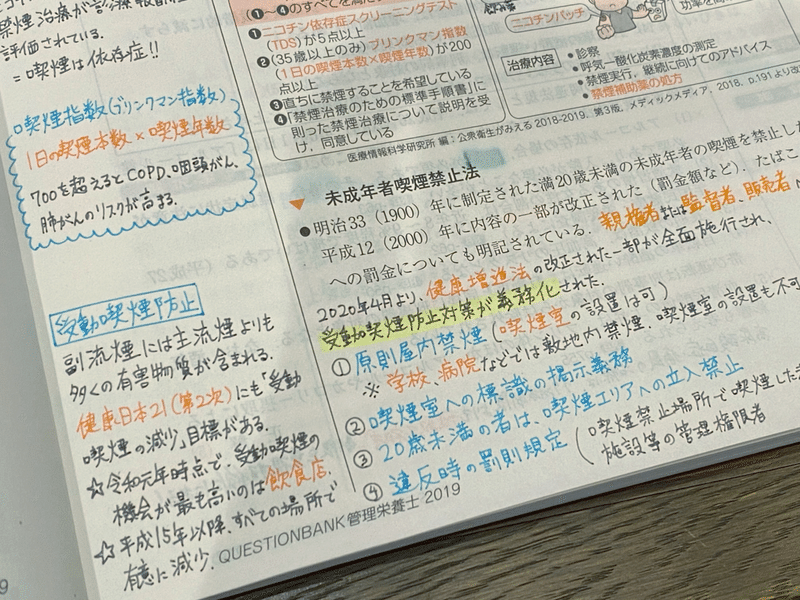 禁煙治療が診療報酬
評価されている.
=喫煙は依存症!!
喫煙指数(ブリンクマン指数)
1日の喫煙本数 × 喫煙年数
700を超えるとCOPD、咽頭がん、
肺がんのリスクが高まる.
受動喫煙防止
副流煙には主流煙よりも
多くの有害物質が含まれる.
健康日本21(第2次)にも「受動
喫煙の減少」目標がある.
☆令和元年時点で、受動喫煙の
機会が最も高いのは飲食店.
☆平成15年以降、すべての場所で
有意に減少.
(❶~❹のすべてを満た
❶ニコチン依存症スクリーニングテスト
(TDS)が5点以上
❷(35歳以上のみ)ブリンクマン指数
(1日の喫煙本数×喫煙年数)が200
点以上
❸直ちに禁煙することを希望している
❹「禁煙治療のための標準手順書」に
則った禁煙治療について説明を受
け,同意している
ニコチンパッチ
治療内容
●診察
●呼気一酸化炭素濃度の測定
●禁煙実行,継続に向けてのアドバイス
●禁煙補助薬の処方
医療情報科学研究所 編:公衆衛生がみえる 2018-2019.第3版,メディックメディア,2018.p.191より改
▼ 未成年者喫煙禁止法
●明治33(1900)年に制定された満20歳未満の未成年者の喫煙を禁止し
平成12(2000)年に内容の一部が改正された(罰金額など).たばこ
への罰金についても明記されている.
親権者または監督者、販売者
2020年4月より、健康増進法の改正された一部が全面施行され、
受動喫煙防止対策が義務化された.
① 原則屋内禁煙(喫煙室の設置は可)
※ 学校、病院などでは敷地内禁煙.喫煙室の設置も不可
② 喫煙室への標識の掲示義務
③ 20歳未満の者は、喫煙エリアへの立入禁止
④ 違反時の罰則規定
(喫煙禁止場所で喫煙した
施設等の管理権限者
QUESTIONBANK管理栄養士 2019
9